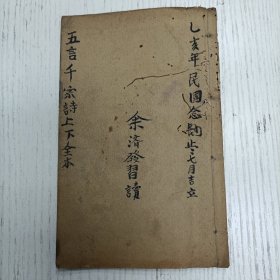 乙亥年民國念肆止七月吉立
余濟發習讀
五言千家詩上下全本